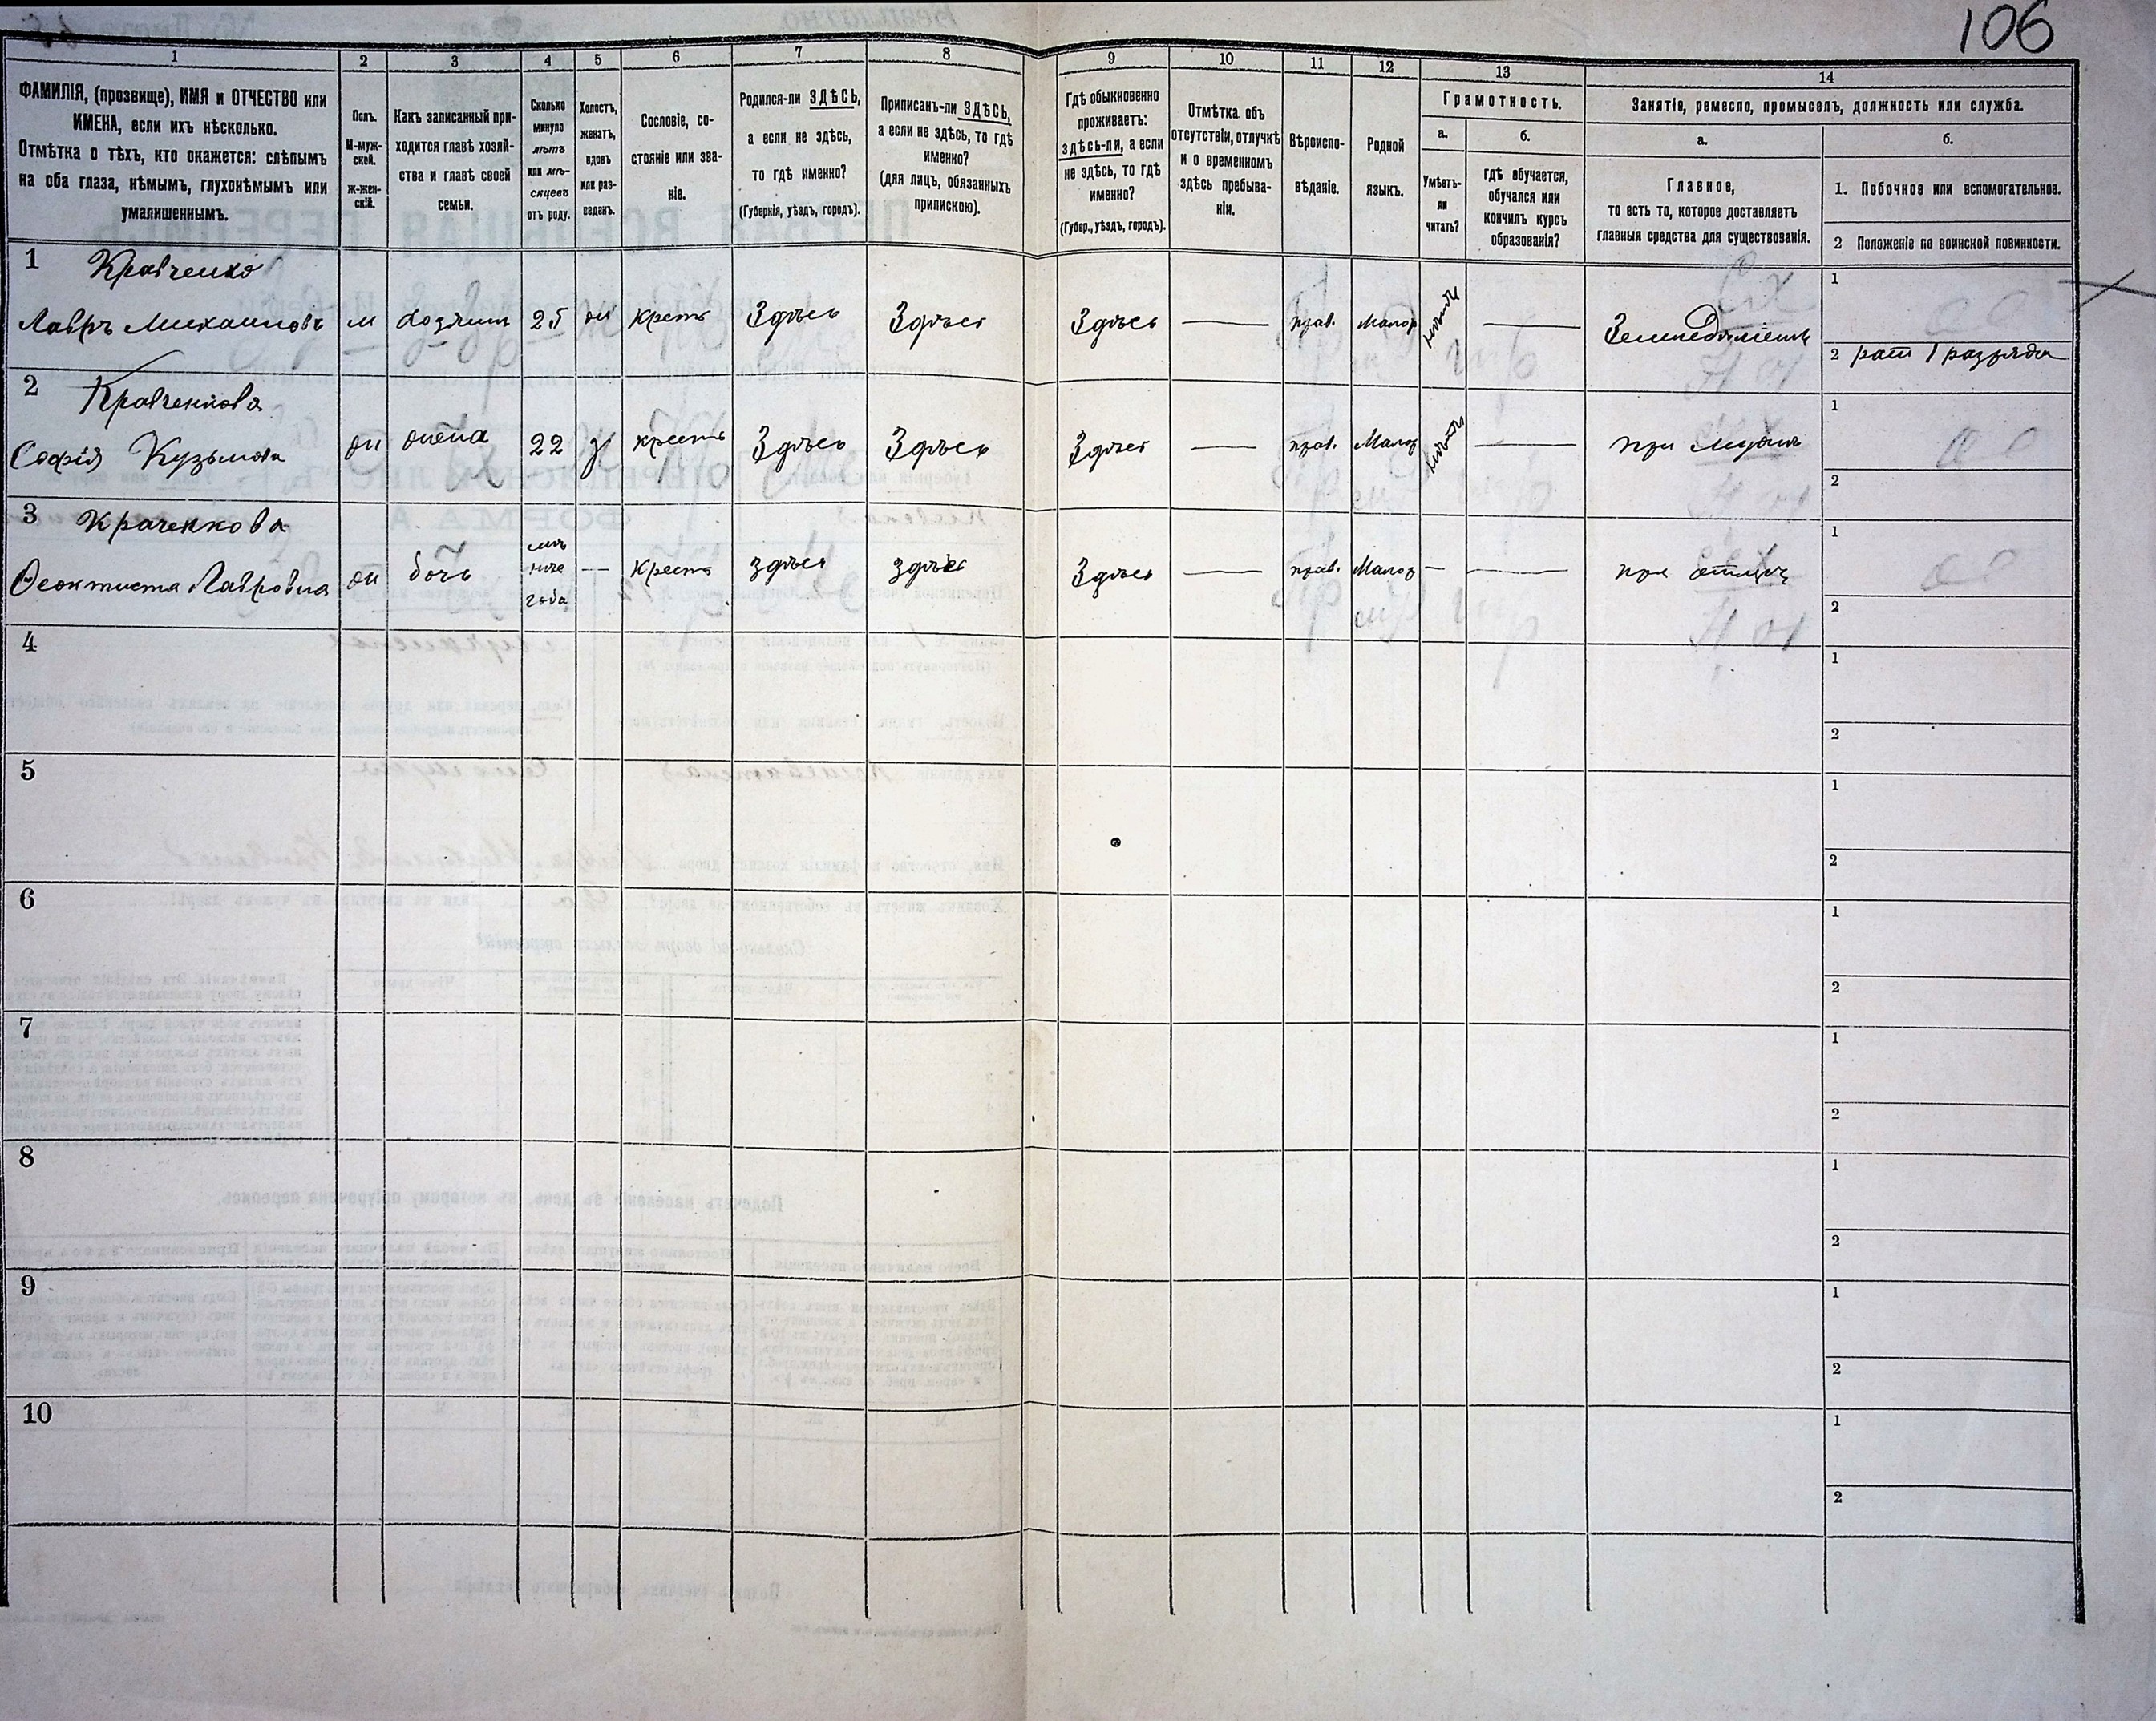 106
1
2
3
4
5
6
7
8
9
10
11
12
13
14
ФАМИЛІЯ, (прозвище), ИМЯ и ОТЧЕСТВО или
ИМЕНА, если ихъ нѣсколько.
Отмѣтка о тѣхъ, кто окажется: слѣпымъ
на оба глаза, нѣмымъ, глухонѣмымъ или
умалишеннымъ.
Полъ.
М-муж-
ской.
ж-жен-
скій.
Какъ записанный при-
ходится главѣ хозяй-
ства и главѣ своей
семьи.
Сколько
минуло
лѣтъ
или мѣ-
сяцевъ
отъ роду.
Холостъ,
женатъ,
вдовъ
или раз-
веденъ.
Сословіе, со-
стояніе или зва-
ніе.
Родился-ли ЗДѢСЬ,
а если не здѣсь,
то гдѣ именно?
(Губернія, уѣздъ, городъ).
Приписанъ-ли ЗДѢСЬ,
а если не здѣсь, то гдѣ
именно?
(для лицъ, обязанныхъ
припискою).
Гдѣ обыкновенно
проживаетъ:
здѣсь-ли, а если
не здѣсь, то гдѣ
именно?
(Губер., уѣздъ, городъ).
Отмѣтка объ
отсутствіи, отлучкѣ
и о временномъ
здѣсь пребыва-
ніи.
Вѣроиспо-
вѣданіе.
Родной
языкъ.
Грамотность.
а.
Умѣетъ-
ли
читать?
б.
гдѣ обучается,
обучался или
кончилъ курсъ
образованія?
Занятіе, ремесло, промыселъ, должность или служба.
а.
Главное,
то есть то, которое доставляетъ
главныя средства для существованія.
б.
1. Побочное или вспомогательное.
2 Положеніе по воинской повинности.
1 Кравченко
Лавръ Михаиловъ м хозяинъ 25 ж крест Здѣсь Здѣсь Здѣсь — прав. Малор — Земледѣліемъ
1
2 рат 1 разряда
2 Кравченкова
Софія Кузьмова ж жена 22 з крест Здѣсь Здѣсь Здѣсь — прав. Малор — при мужѣ
1
2
3 Краченкова
Ѳеоктиста Лавровна ж дочь
года
— Крест здѣсь здѣсь Здѣсь — прав. Малор — — при отцѣ
1
2
4
1
2
5
1
2
6
1
2
7
1
2
8
1
2
9
1
2
10
1
2